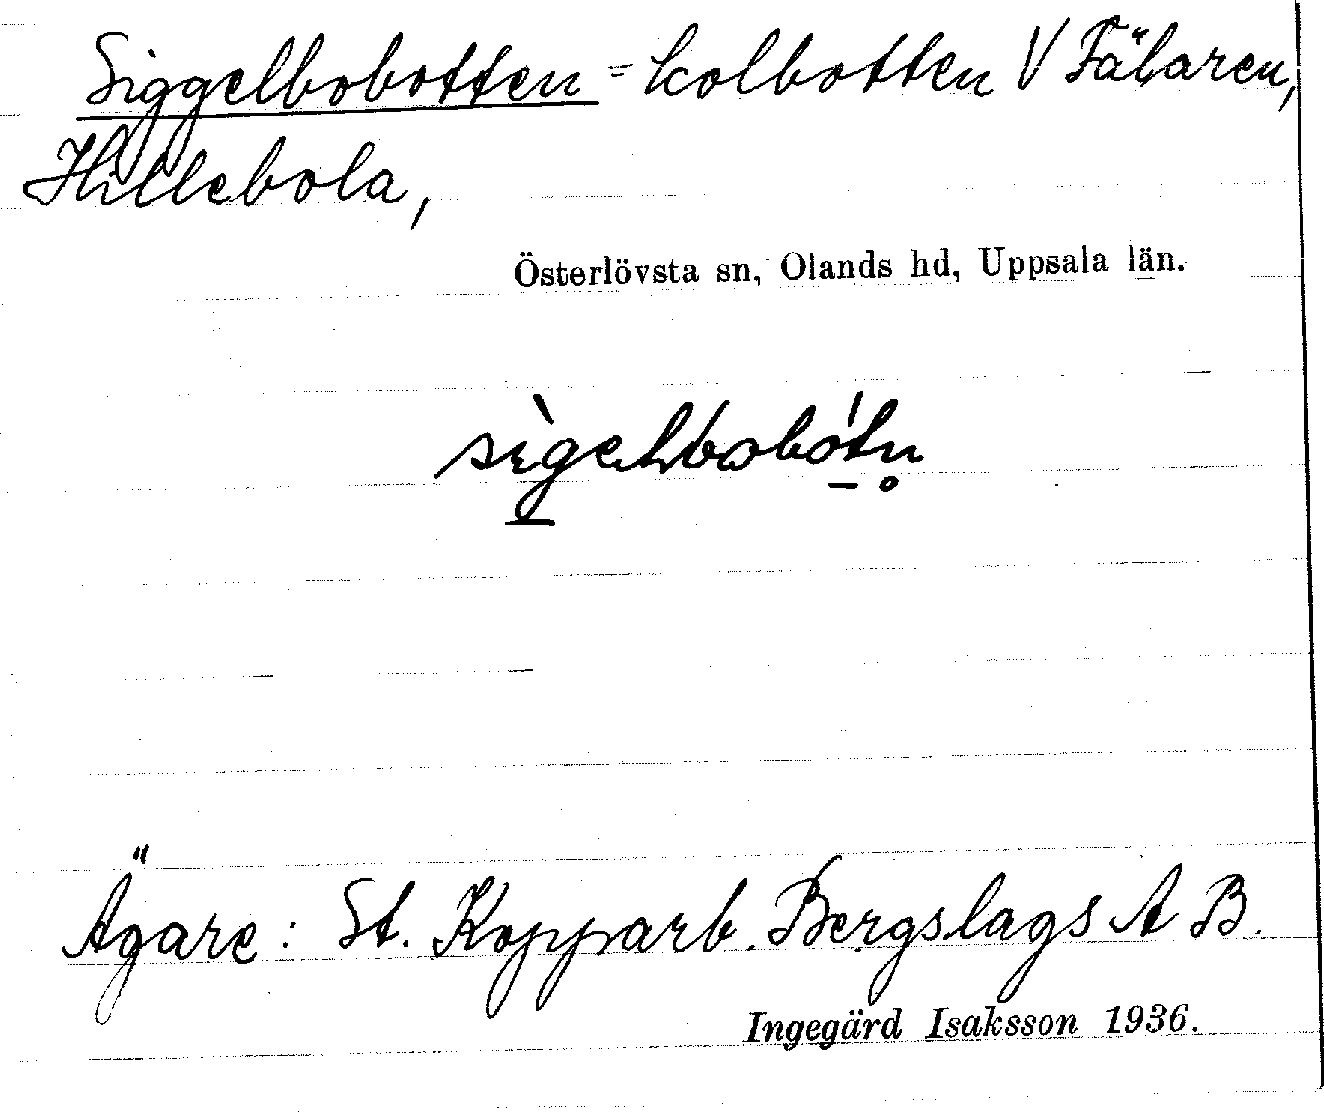 Siggelbobotten = kolbotten V Fälaren,
Hillebola,
Österlövsta sn, Olands hd, Uppsala län.
Ägare: St. Kopparb. Bergslags A B.
Ingegärd Isaksson 1936.